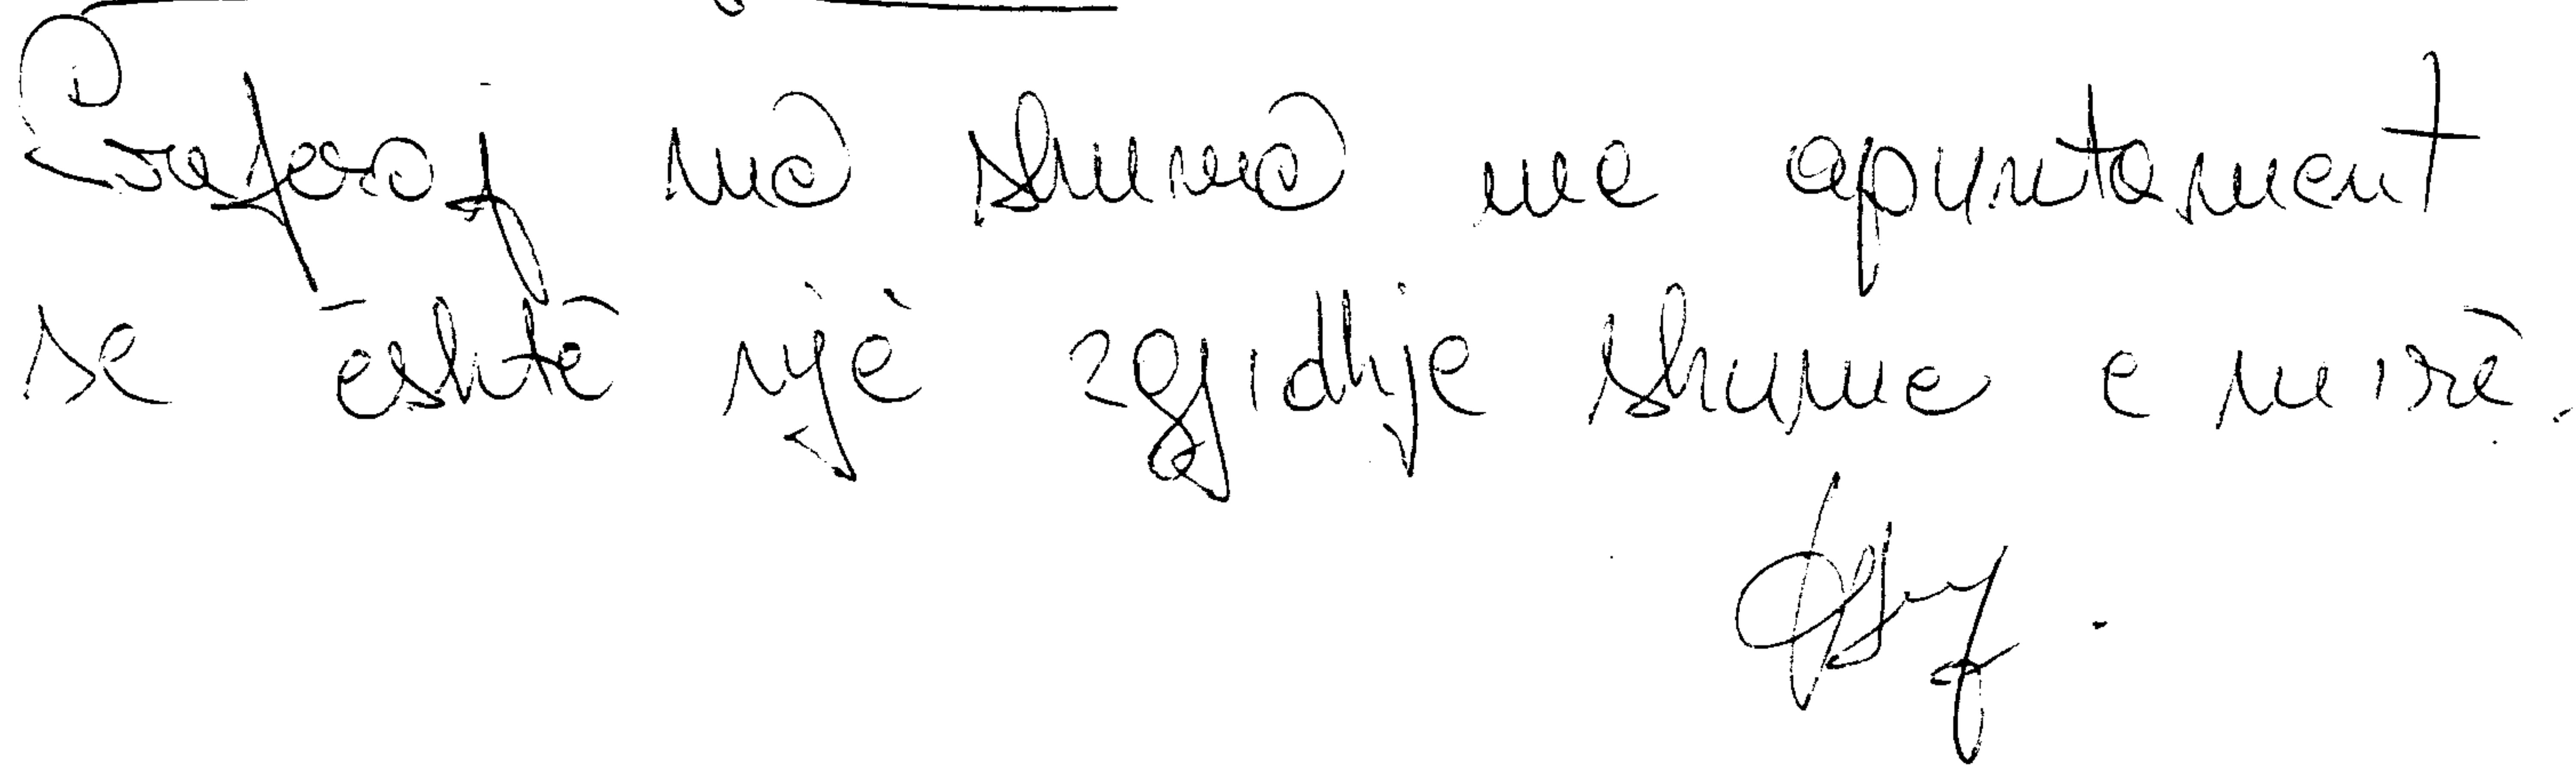 Preferoj më shumë me apuntament
se është një zgjidhje shume e mirë.